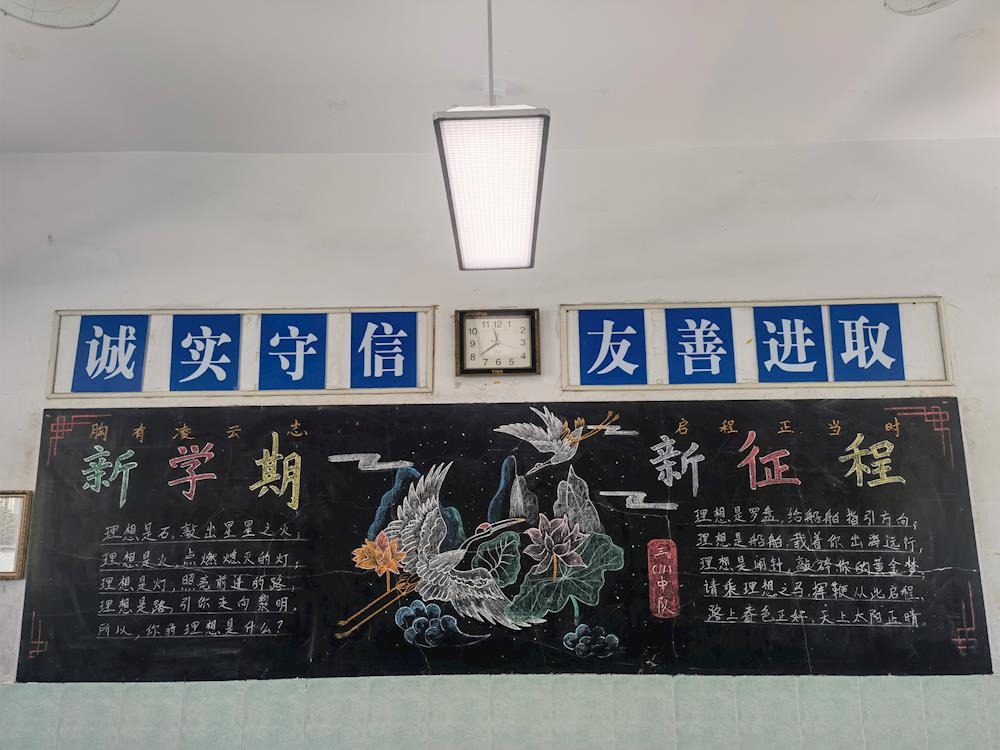 诚实守信
友善进取
11 12 1
10 2
9 3
8 4
7 6 5
胸有凌云志
新学期
理想是石,敲出星星之火,
理想是火,点燃熄灭的灯,
理想是灯,照亮前进的路,
理想是路,引你走向黎明。
所以,你的理想是什么?
三(1)中队
启程正当时
新征程
理想是罗盘,给船舶指引方向,
理想是船舶,载着你出海远行,
理想是闹钟,敲碎你的黄金梦,
请乘理想之马,挥鞭从此启程,
路上春色正好,天上太阳正晴。